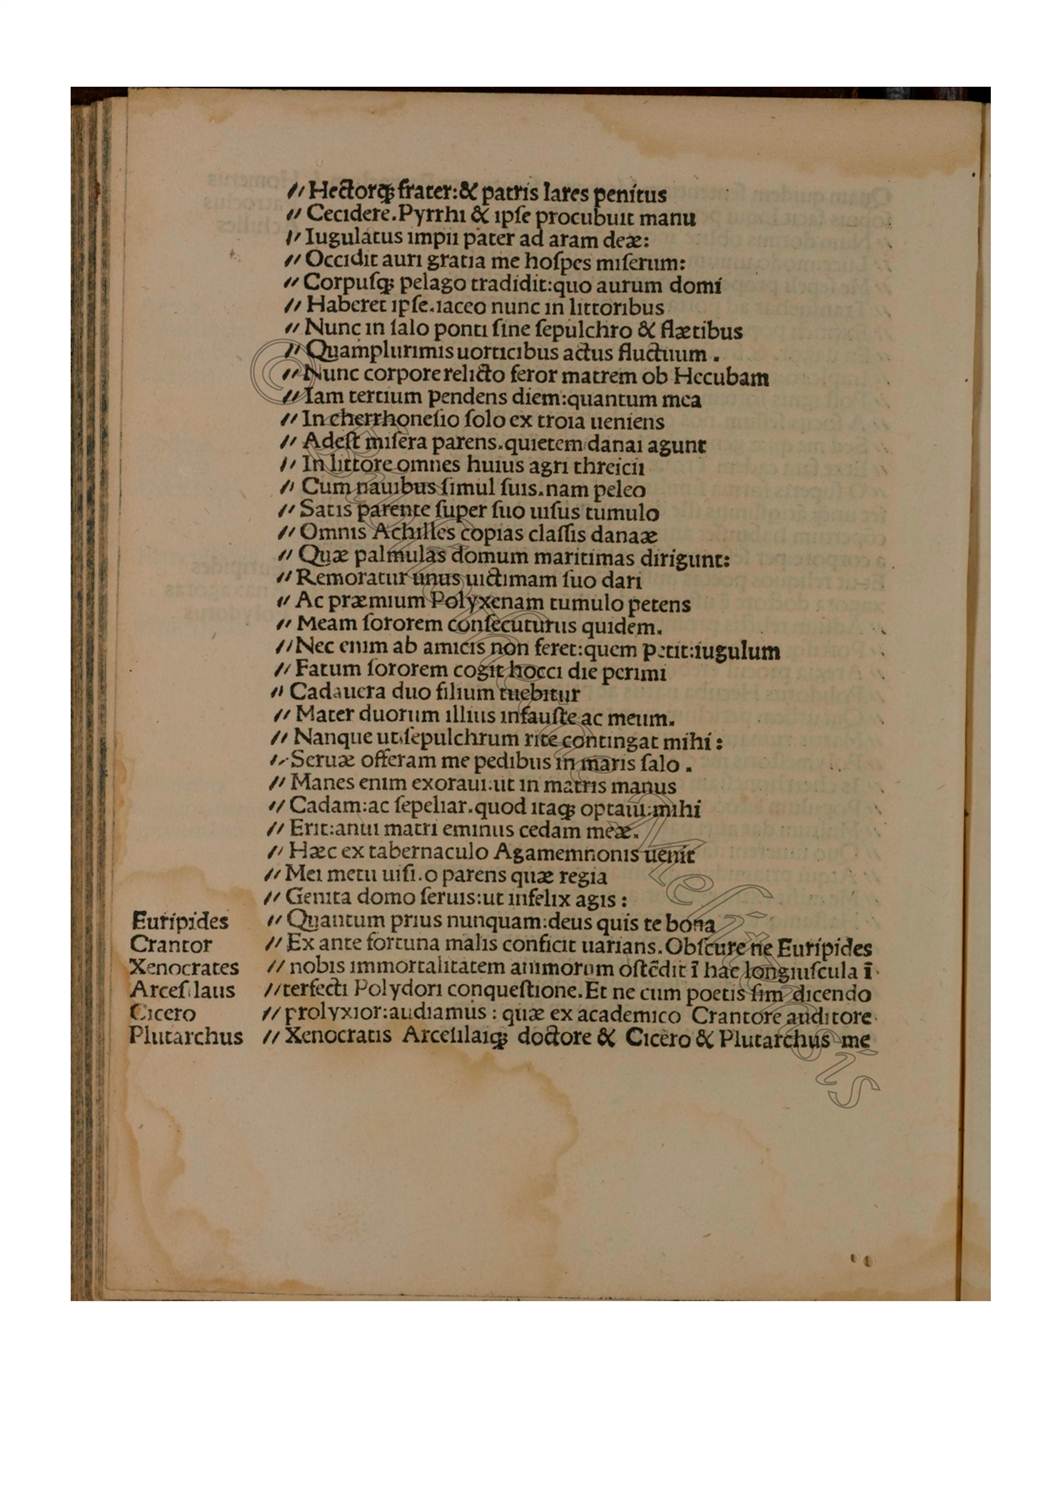 // Hectorq; frater:& patris lares penitus
// Cecidere.Pyrrhi & ipſe procubuit manu
// Iugulatus impii pater ad aram deæ:
// Occidit auri gratia me hoſpes miſerum:
// Corpuſq; pelago tradidit:quo aurum domi
// Haberet ipſe.iaceo nunc in littoribus
// Nunc in ſalo ponti ſine ſepulchro & flætibus
// Quamplurimis uorticibus actus fluctuum .
// Nunc corpore relicto feror matrem ob Hecubam
// Iam tertium pendens diem:quantum mea
// In cherrhoneſio ſolo ex troia ueniens
// Adeſt miſera parens.quietem danai agunt
// In littore omnes huius agri threicii
// Cum nauibus ſimul ſuis.nam peleo
// Satis parente ſuper ſuo uiſus tumulo
// Omnis Achilles copias claſſis danaæ
// Quæ palmulas domum maritimas dirigunt:
// Remoratur unus uictimam ſuo dari
// Ac præmium Polyxenam tumulo petens
// Meam ſororem conſecuturus quidem.
// Nec enim ab amicis non feret:quem petit:iugulum
// Fatum ſororem cogit hocci die perimi
// Cadauera duo filium tuebitur
// Mater duorum illius infauſte ac meum.
// Nanque ut ſepulchrum rite contingat mihi :
// Seruæ offeram me pedibus in maris ſalo .
// Manes enim exoraui:ut in matris manus
// Cadam:ac ſepeliar.quod itaq; optaui:mihi
// Erit:anui matri eminus cedam meæ.
// Hæc ex tabernaculo Agamemnonis uenit
// Mei metu uiſi.o parens quæ regia
// Genita domo ſeruis:ut infelix agis :
Euripides // Quantum prius nunquam:deus quis te bona
Crantor // Ex ante fortuna malis conficit uarians.Obſcure ne Euripides
Xenocrates // nobis immortalitatem animorum oſtēdit ī hac longiuſcula ī
Arceſilaus // terfecti Polydori conqueſtione.Et ne cum poetis ſim dicendo
Cicero // prolyxior:audiamus : quæ ex academico Crantore auditore
Plutarchus // Xenocratis Arceſilaiq; doctore & Cicero & Plutarchus me